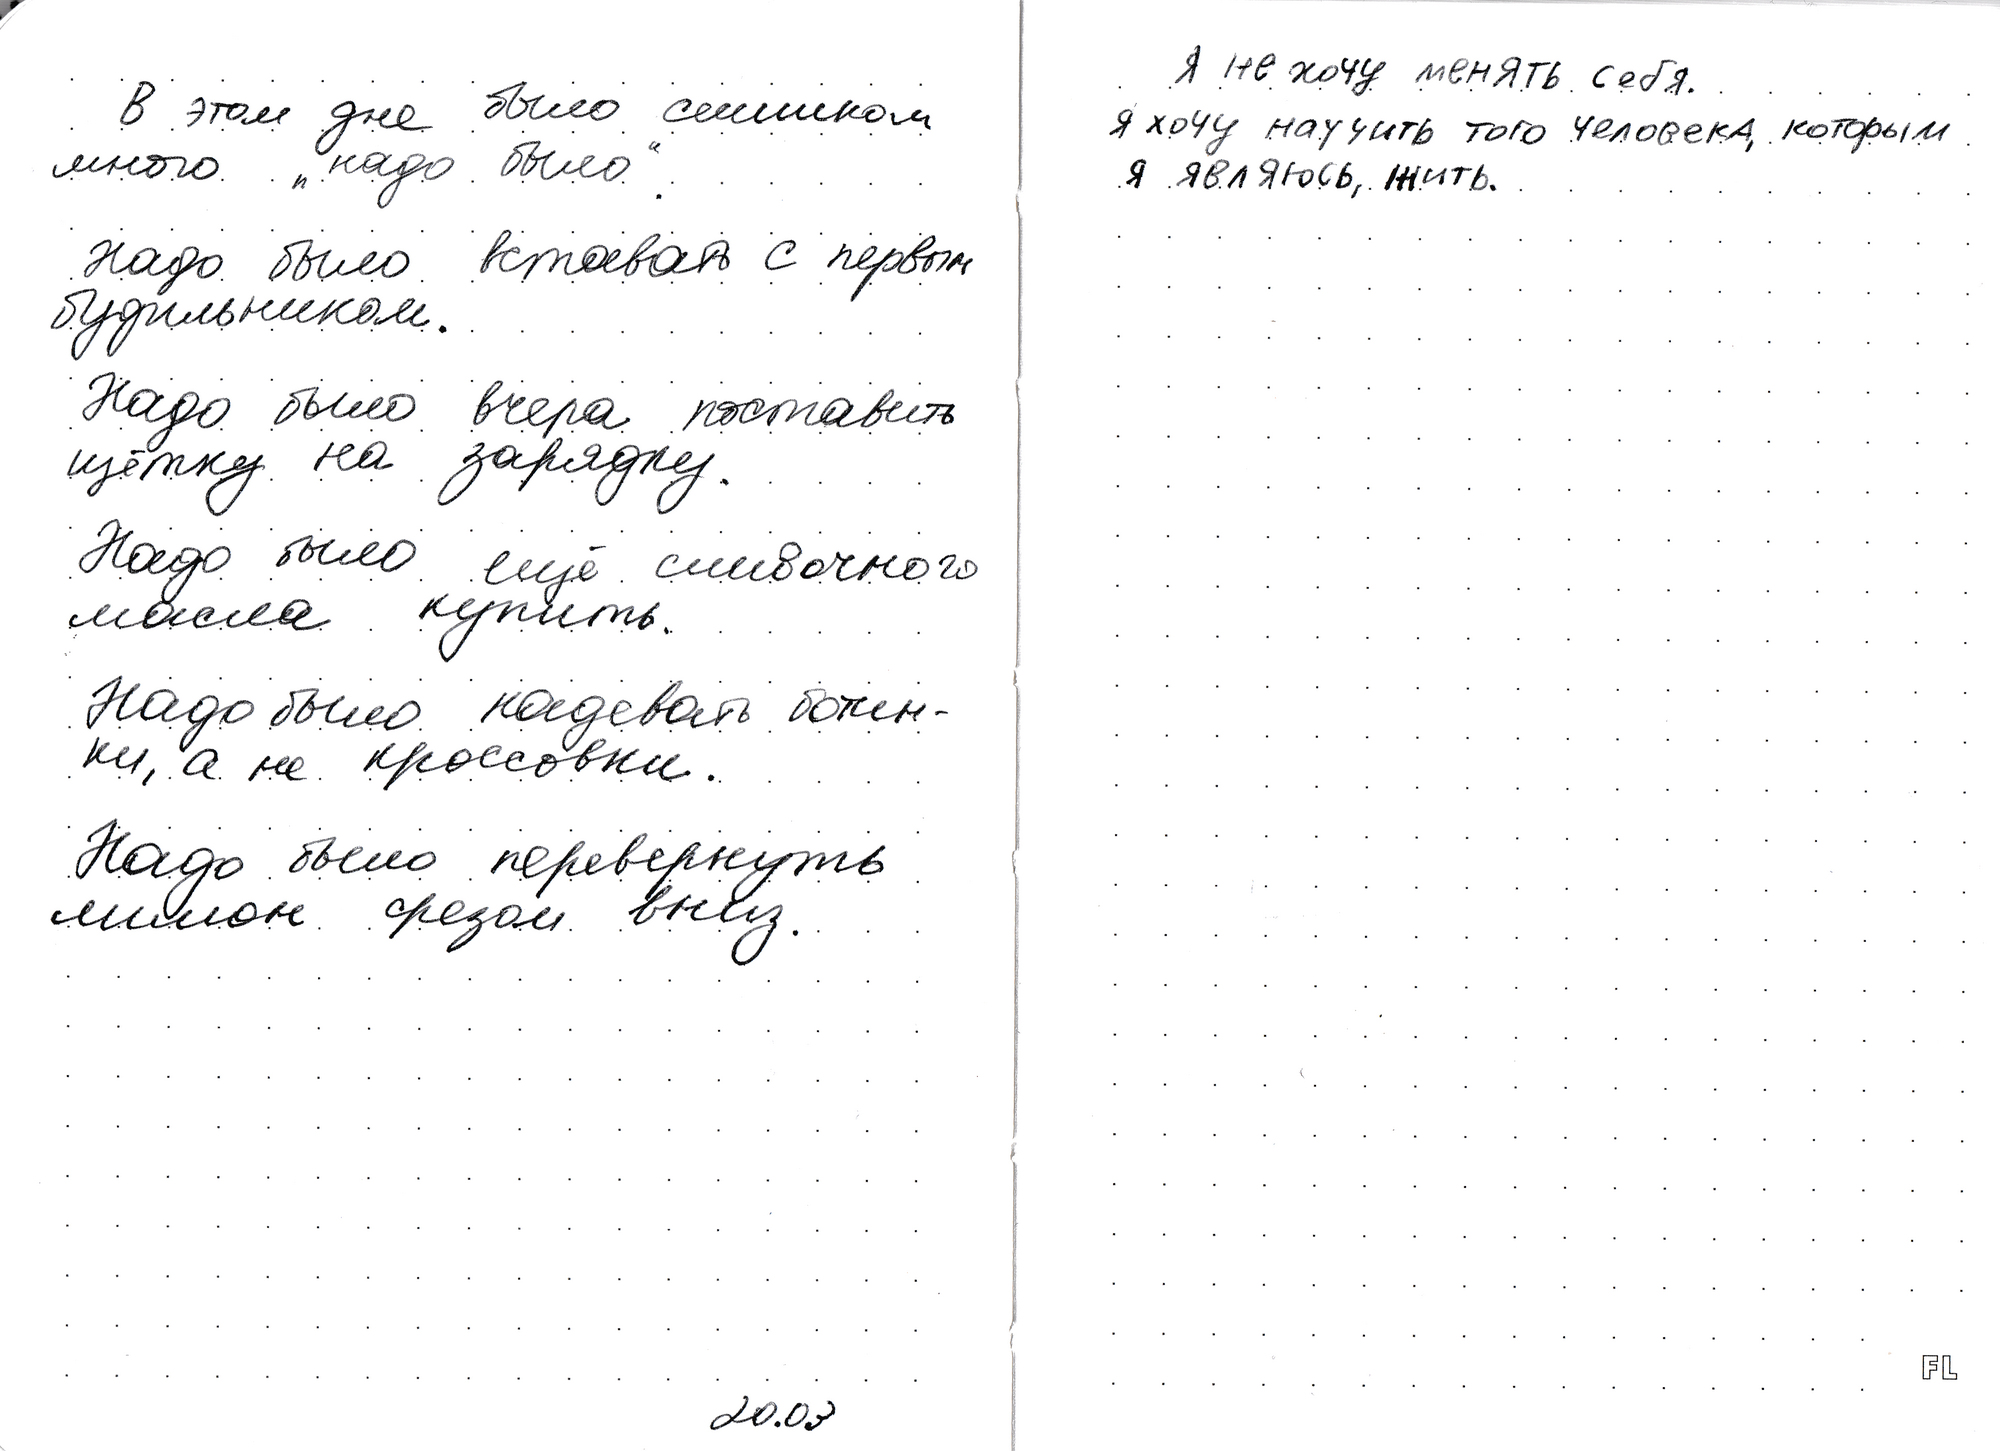 В этом дне было слишком
много „надо было“.
Надо было вставать с первым
будильником.
Надо было вчера поставить
щётку на зарядку.
Надо было ещё сливочного
масла купить.
Надо было надевать ботин-
ки, а не кроссовки.
Надо было перевернуть
лимон срезом вниз.
20.03
Я не хочу менять себя.
Я хочу научить того человека, которым
я являюсь, жить.
FL